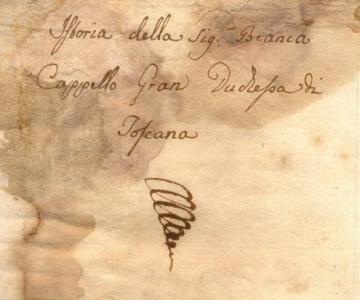 Istoria della Sig.ª Bianca
Cappello Gran Duchessa di
Toscana